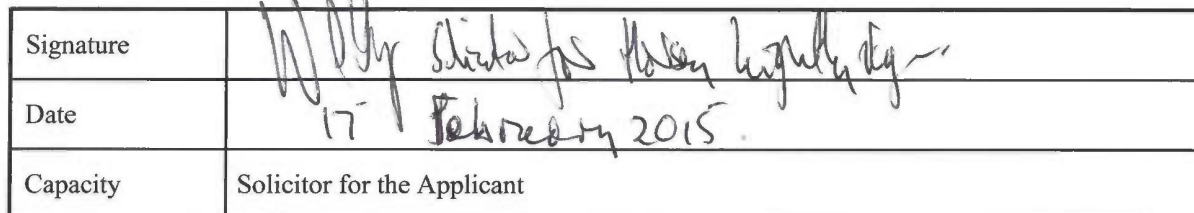 Signature Solicitor for
Date 17 February 2015.
Capacity Solicitor for the Applicant